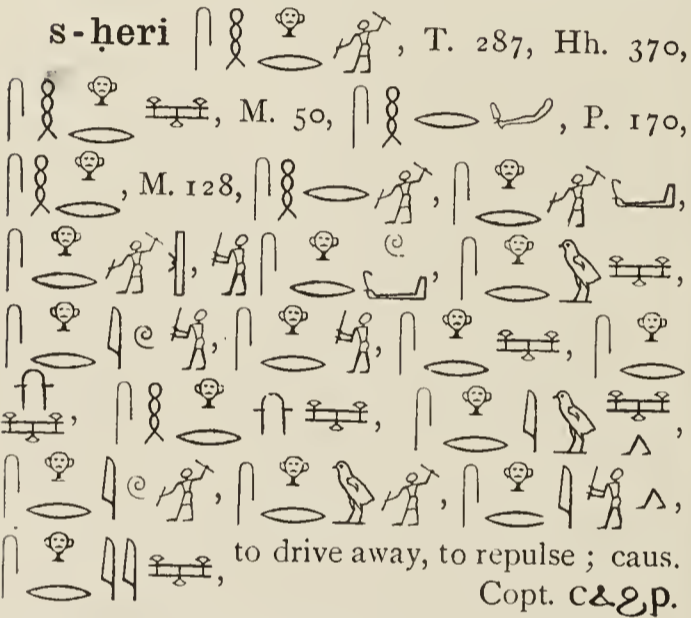 s-ḥeri 𓋴𓎛𓁷𓂋𓀜, T. 287, Hh. 370,
𓋴𓎛𓁷𓂋𓈐, M. 50, 𓋴𓎛𓂋, P. 170,
𓋴𓎛𓁷𓂋, M. 128, 𓋴𓎛𓂋𓀜, 𓋴𓁷𓂋𓀜𓂡,
𓋴𓁷𓂋𓀜, 𓋴𓁷𓂋𓏲𓂡, 𓋴𓁷𓂋𓅱𓈐,
𓋴𓁷𓂋𓇋𓏲𓀜, 𓋴𓁷𓂋𓀜, 𓋴𓁷𓂋𓈐, 𓋴𓁷𓂋
𓈐, 𓋴𓎛𓁷𓂋𓈐, 𓋴𓁷𓂋𓇋𓅱𓈐𓂻,
𓋴𓁷𓂋𓇋𓏲𓀜, 𓋴𓁷𓂋𓅱𓀜, 𓋴𓁷𓂋𓇋𓀜𓂻,
𓋴𓁷𓂋𓇋𓇋𓈐, to drive away, to repulse ; caus.
Copt. ⲥⲁϩⲣ.